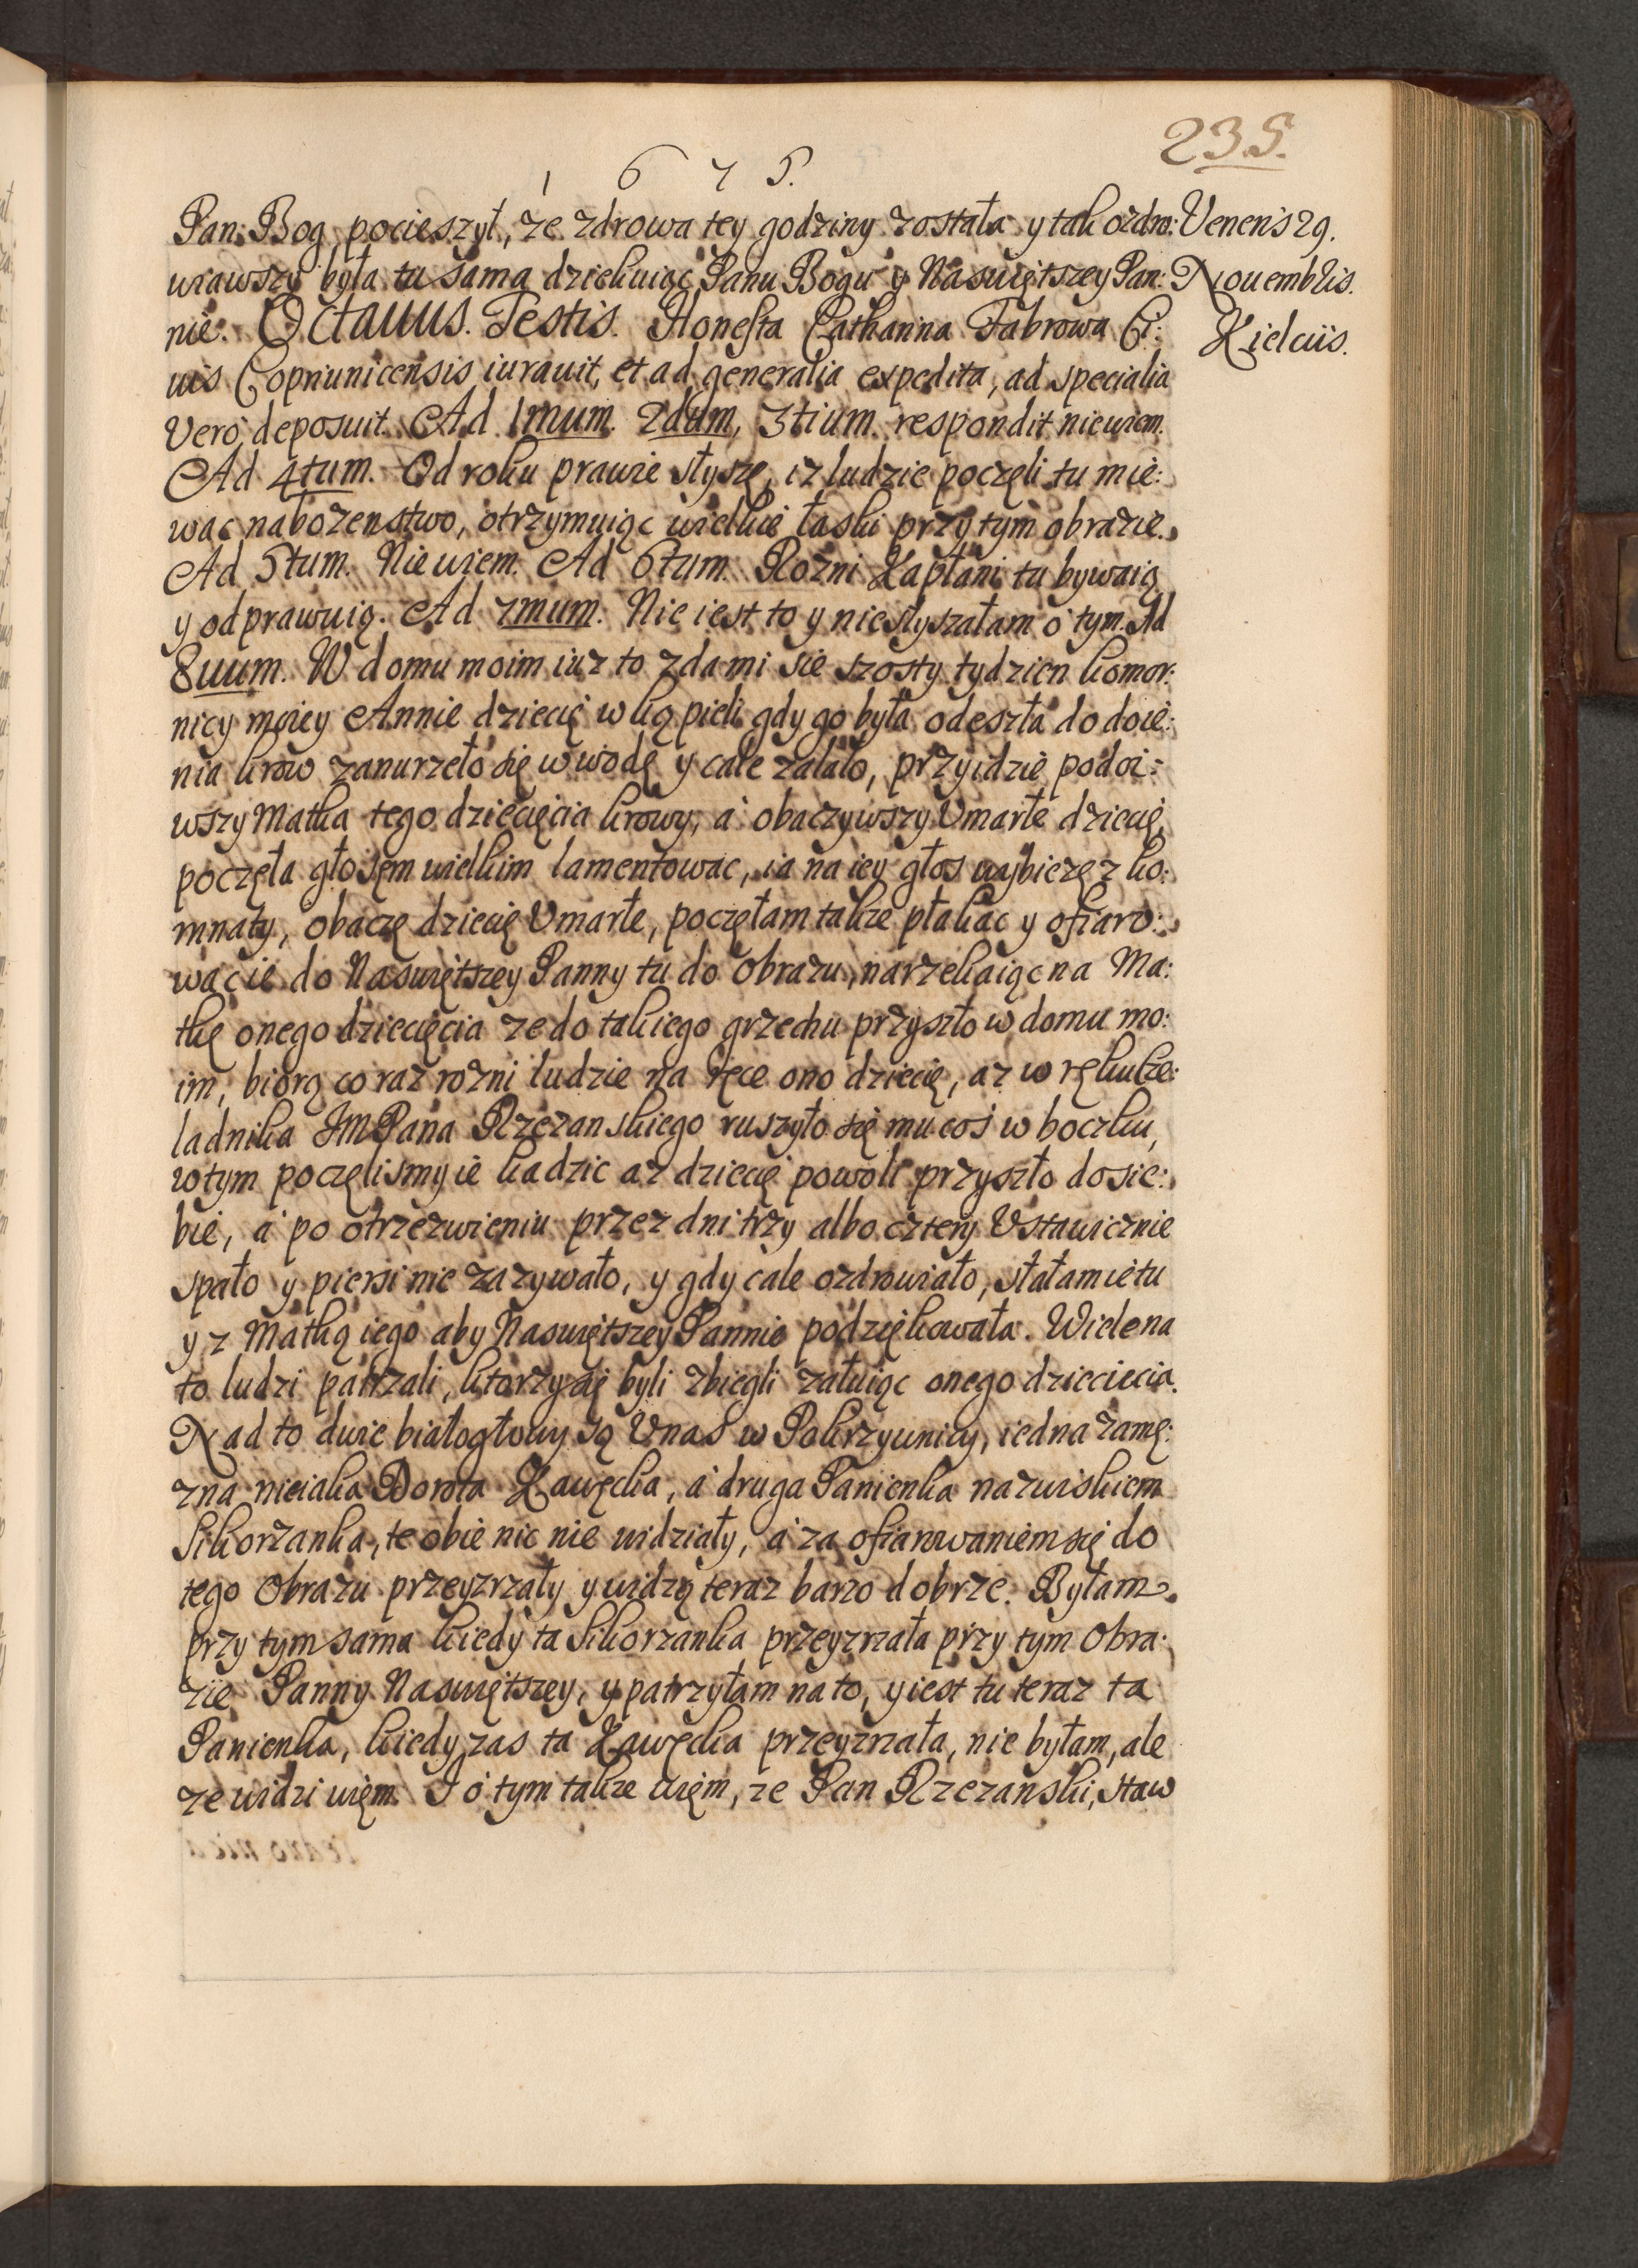 235.
1 6 7 5.
Pan: Bog pocieszył, ze zdrowa tey godziny została y tak ozdro:
wiawszy była tu sama dziekuiąc Panu Bogu y Naswiętszey Pan:
nie. Octauus. Testis. Honesta Catharina Fabrowa Ci:
uis Copriunicensis iurauit, et ad generalia expedita, ad specialia
Vero deposuit. Ad 1mum. 2dum, 3tium. respondit niewiem.
Ad 4tum. Od roku prawie słyszę, iz ludzie poczęli tu mie:
wac nabozenstwo, otrzymuiąc wielkie łaski przy tym obrazie.
Ad 5tum. Niewiem. Ad 6tum. Rozni Kapłani tu bywaią
y odprawuią. Ad 7mum. Nie iest to y niesłyszałam o tym. Ad
8uum. W domu moim iuz to zda mi sie szosty tydzien komor:
nicy moiey Annie dziecię w kąpieli gdy go była odeszła do doie:
nia krow zanurzeło się w wodę y cale zalało, przyidzie podoi:
wszy Matka tego dziecięcia krowy, a obaczywszy Vmarłe dziecię,
poczęła głosem wielkim lamentowac, ia na iey głos wybiezę z ko:
mnaty, obaczę dziecię Vmarłe, poczęłam takze płakac y ofiaro:
wac ie do Naswiętszey Panny tu do Obrazu, narzekaiąc na Ma:
tkę onego dziecięcia ze do takiego grzechu przyszło w domu mo:
im, biorą co raz rozni ludzie na ręce ono dziecię, az w ręku cze:
ladnika JMPana Rzezanskiego ruszyło się mu coś w boczku,
w tym poczęlismy ie kadzic az dziecię powoli przyszło do sie:
bie, a po otrzezwieniu przez dni trzy albo cztery Vstawicznie
spało y piersi nie zazywało, y gdy cale ozdrowiało, słałam ie tu
y z Matką iego aby Naswiętszey Pannie podziękowała. Wiele na
to ludzi patrzali, ktorzy się byli zbiegli załuiąc onego dziecięcia.
Nad to dwie białogłowy są V nas w Pokrzywnicy, iedna zamę:
zna nieiaka Dorota Kawęcka, a druga Panienka nazwiskiem
Sikorzanka, te obie nic nie widziały, a za ofiarowaniem się do
tego Obrazu przeyzrzały y widzą teraz barzo dobrze. Byłam
przy tym sama kiedy ta Sikorzanka przeyzrzała przy tym Obra:
zie Panny Naswiętszey, y patrzyłam na to, y iest tu teraz ta
Panienka, kiedy zas ta Kawęcka przeyzrzała, nie byłam, ale
ze widzi wiem. I o tym takze wiem, ze Pan Rzezanski, staw
Veneris 29.
Nouembris.
Kielciis.